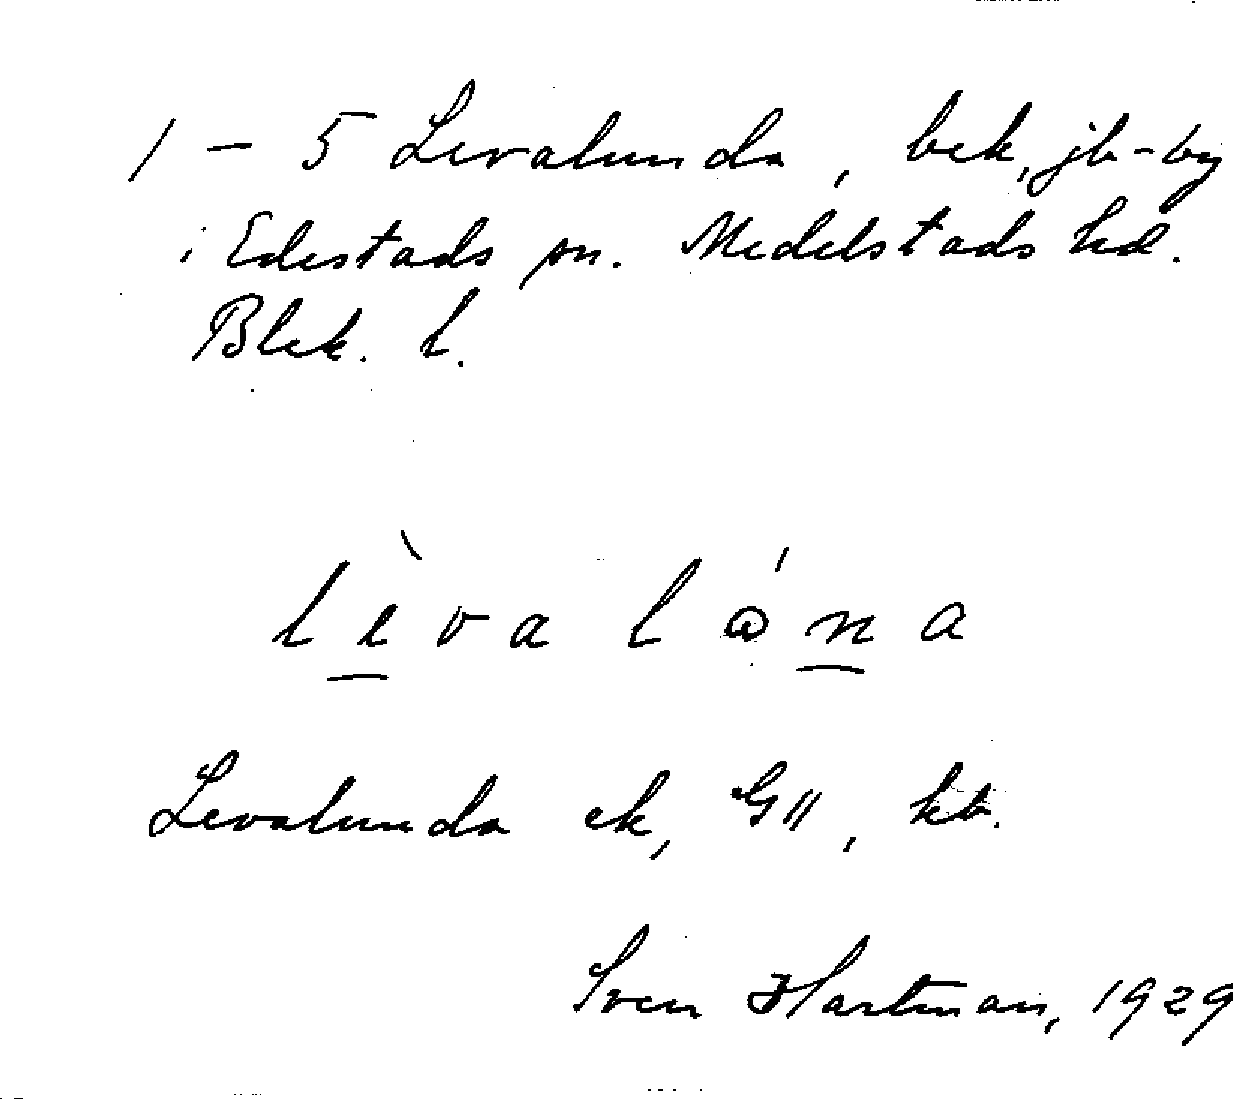 1 – 5 Levalunda, bek, jb-by
i Edestads sn. Medelstads hd.
Blek. l.
lèvalána
Levalunda ek, G11, kb.
Sven Hartman, 1929